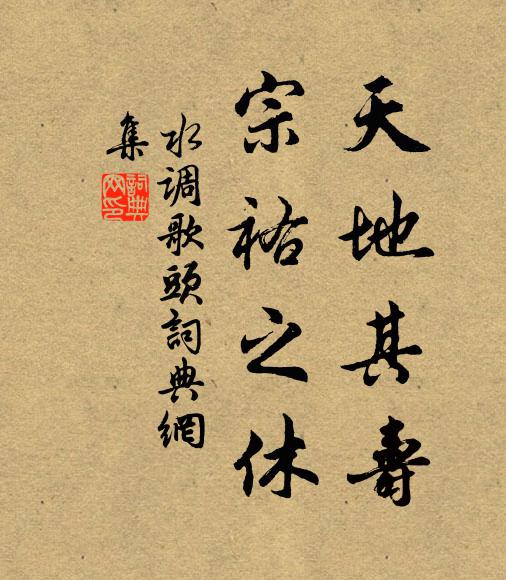 天地其壽
宗祐之休
水調歌頭詞典網
集
詞典網印